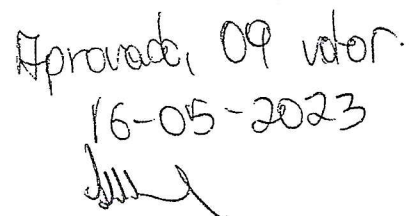 Aprovado, 09 valor.
16-05-2023